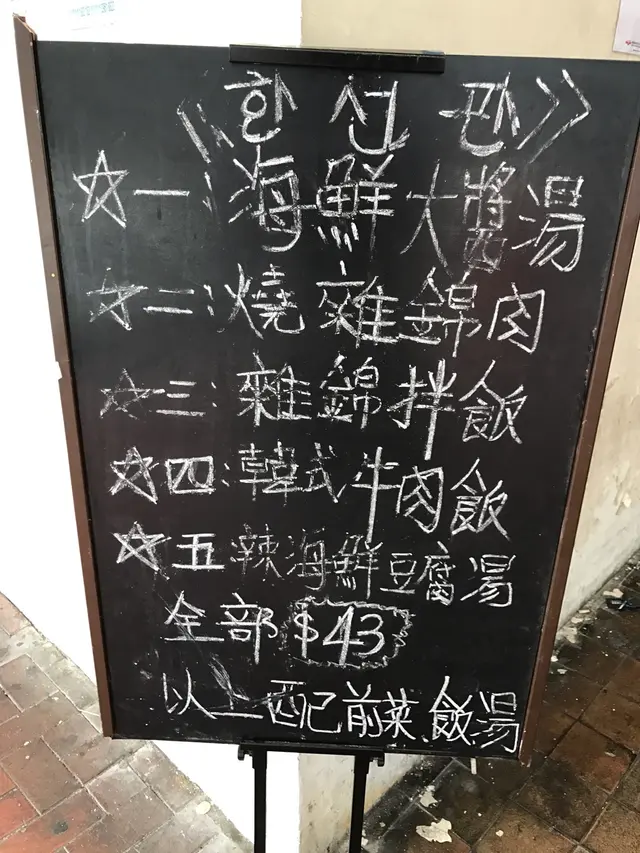 《한선관》
☆一:海鮮大醬湯
☆二:燒雜錦肉
☆三:雜錦拌飯
☆四:韓式牛肉飯
☆五:辣海鮮豆腐湯
全部$43
以上配前菜.飯湯